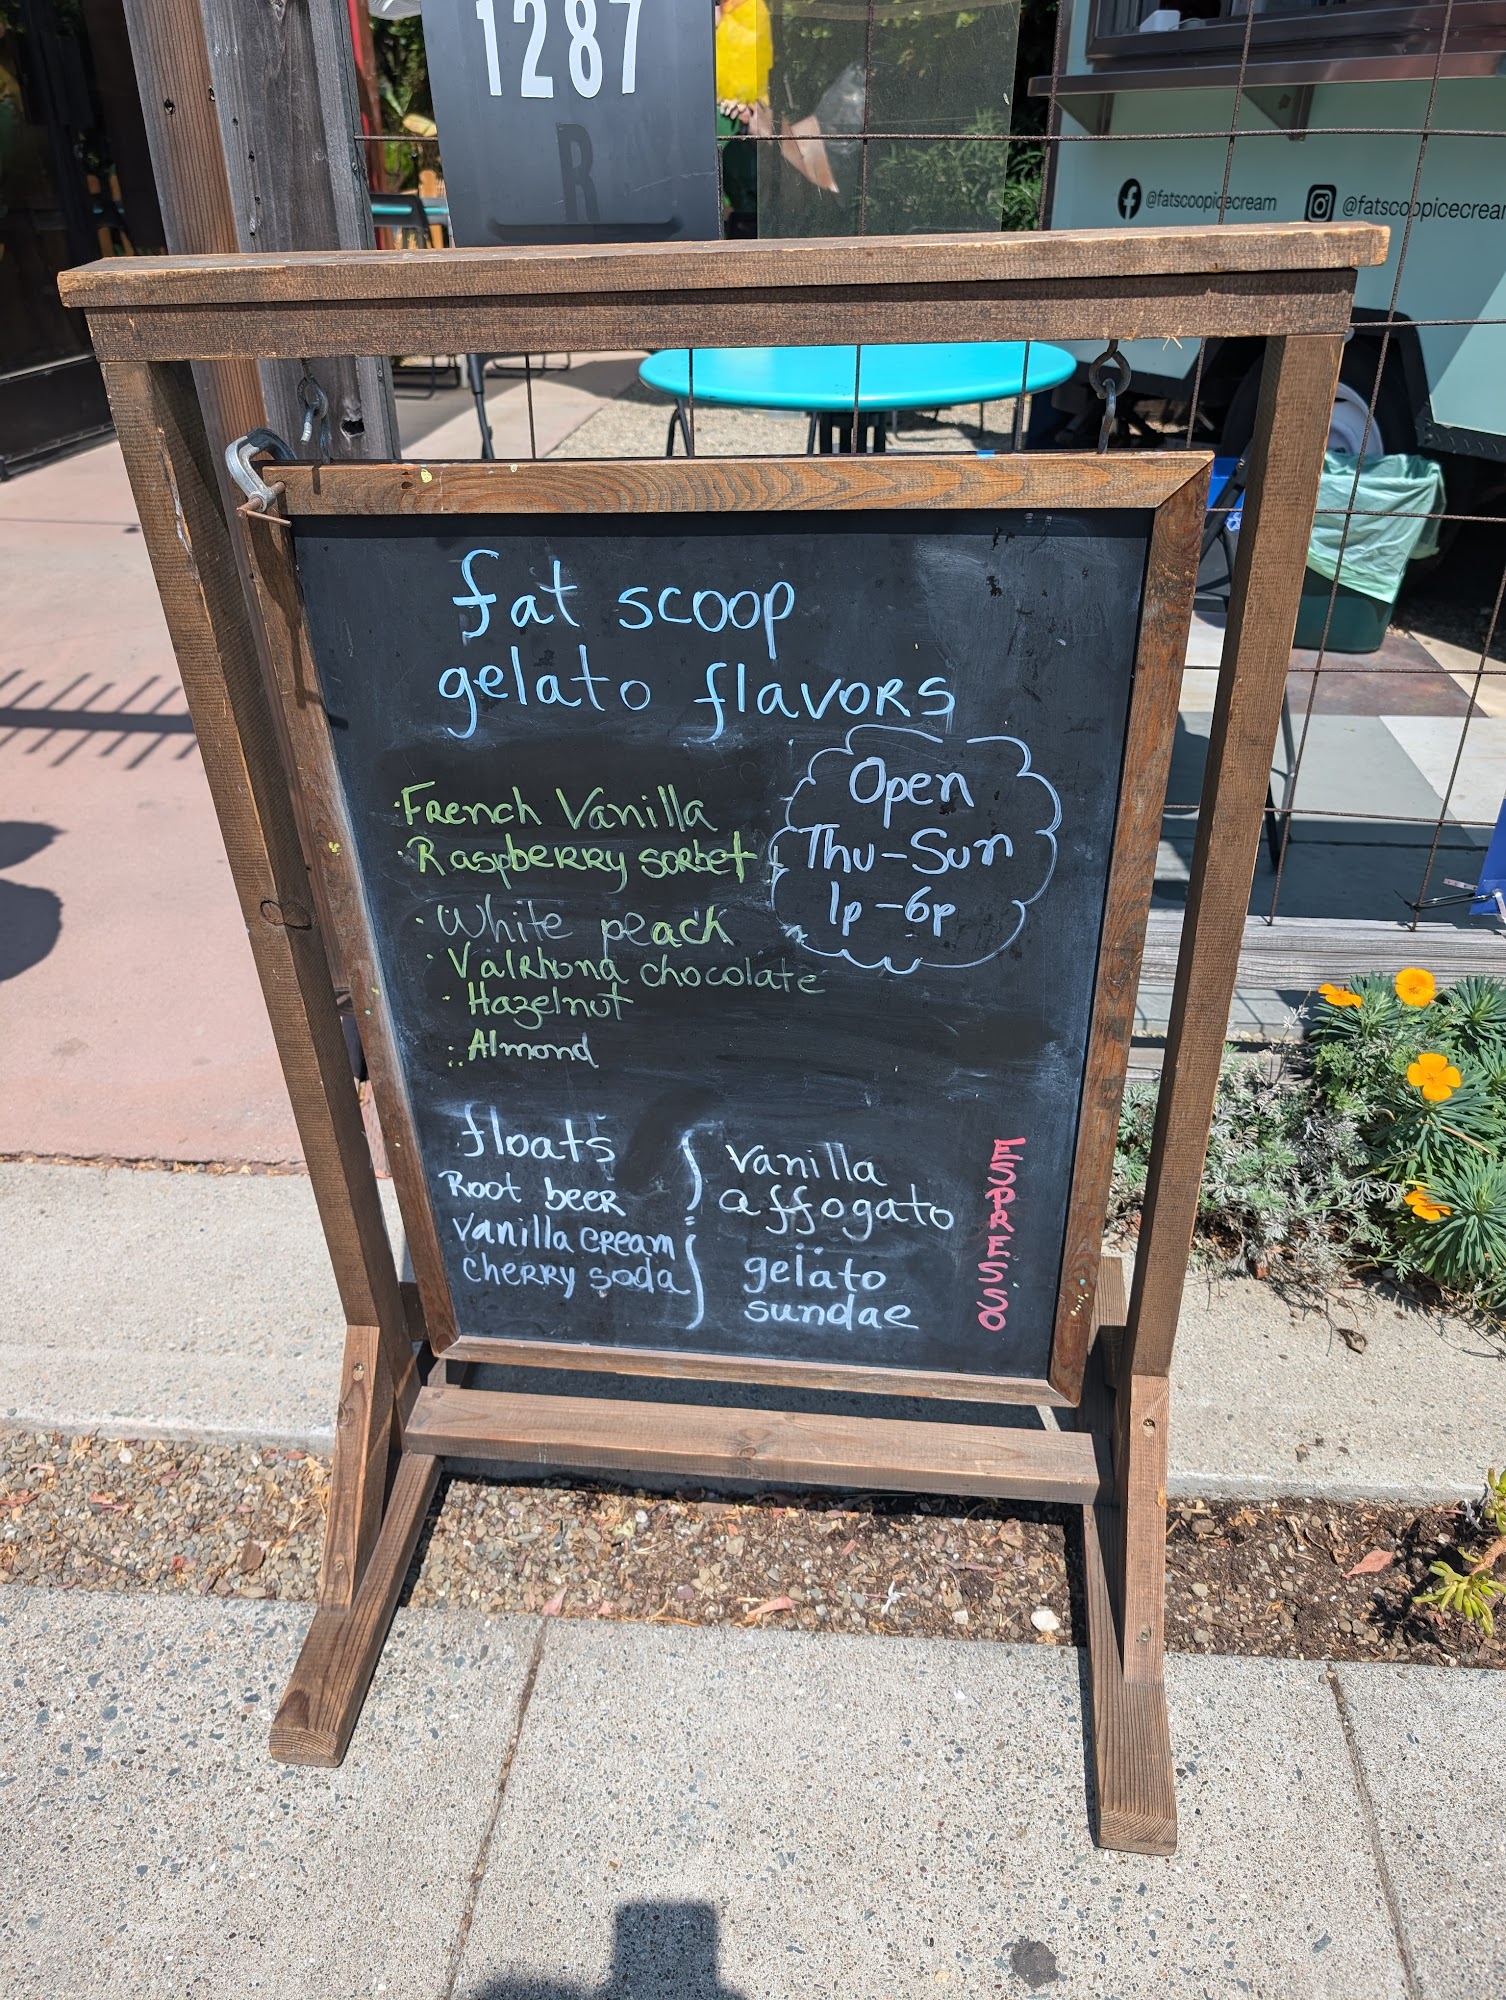 1287
R
@fatscoopicecream
@fatscoopicecream
fat scoop
gelato flavors
·French Vanilla
·Raspberry sorbet
·White peach
·Valrhona chocolate
·Hazelnut
·Almond
Open
Thu-Sun
1p-6p
floats
Root beer
vanilla cream
cherry soda
vanilla
affogato
gelato
sundae
ESPRESSO